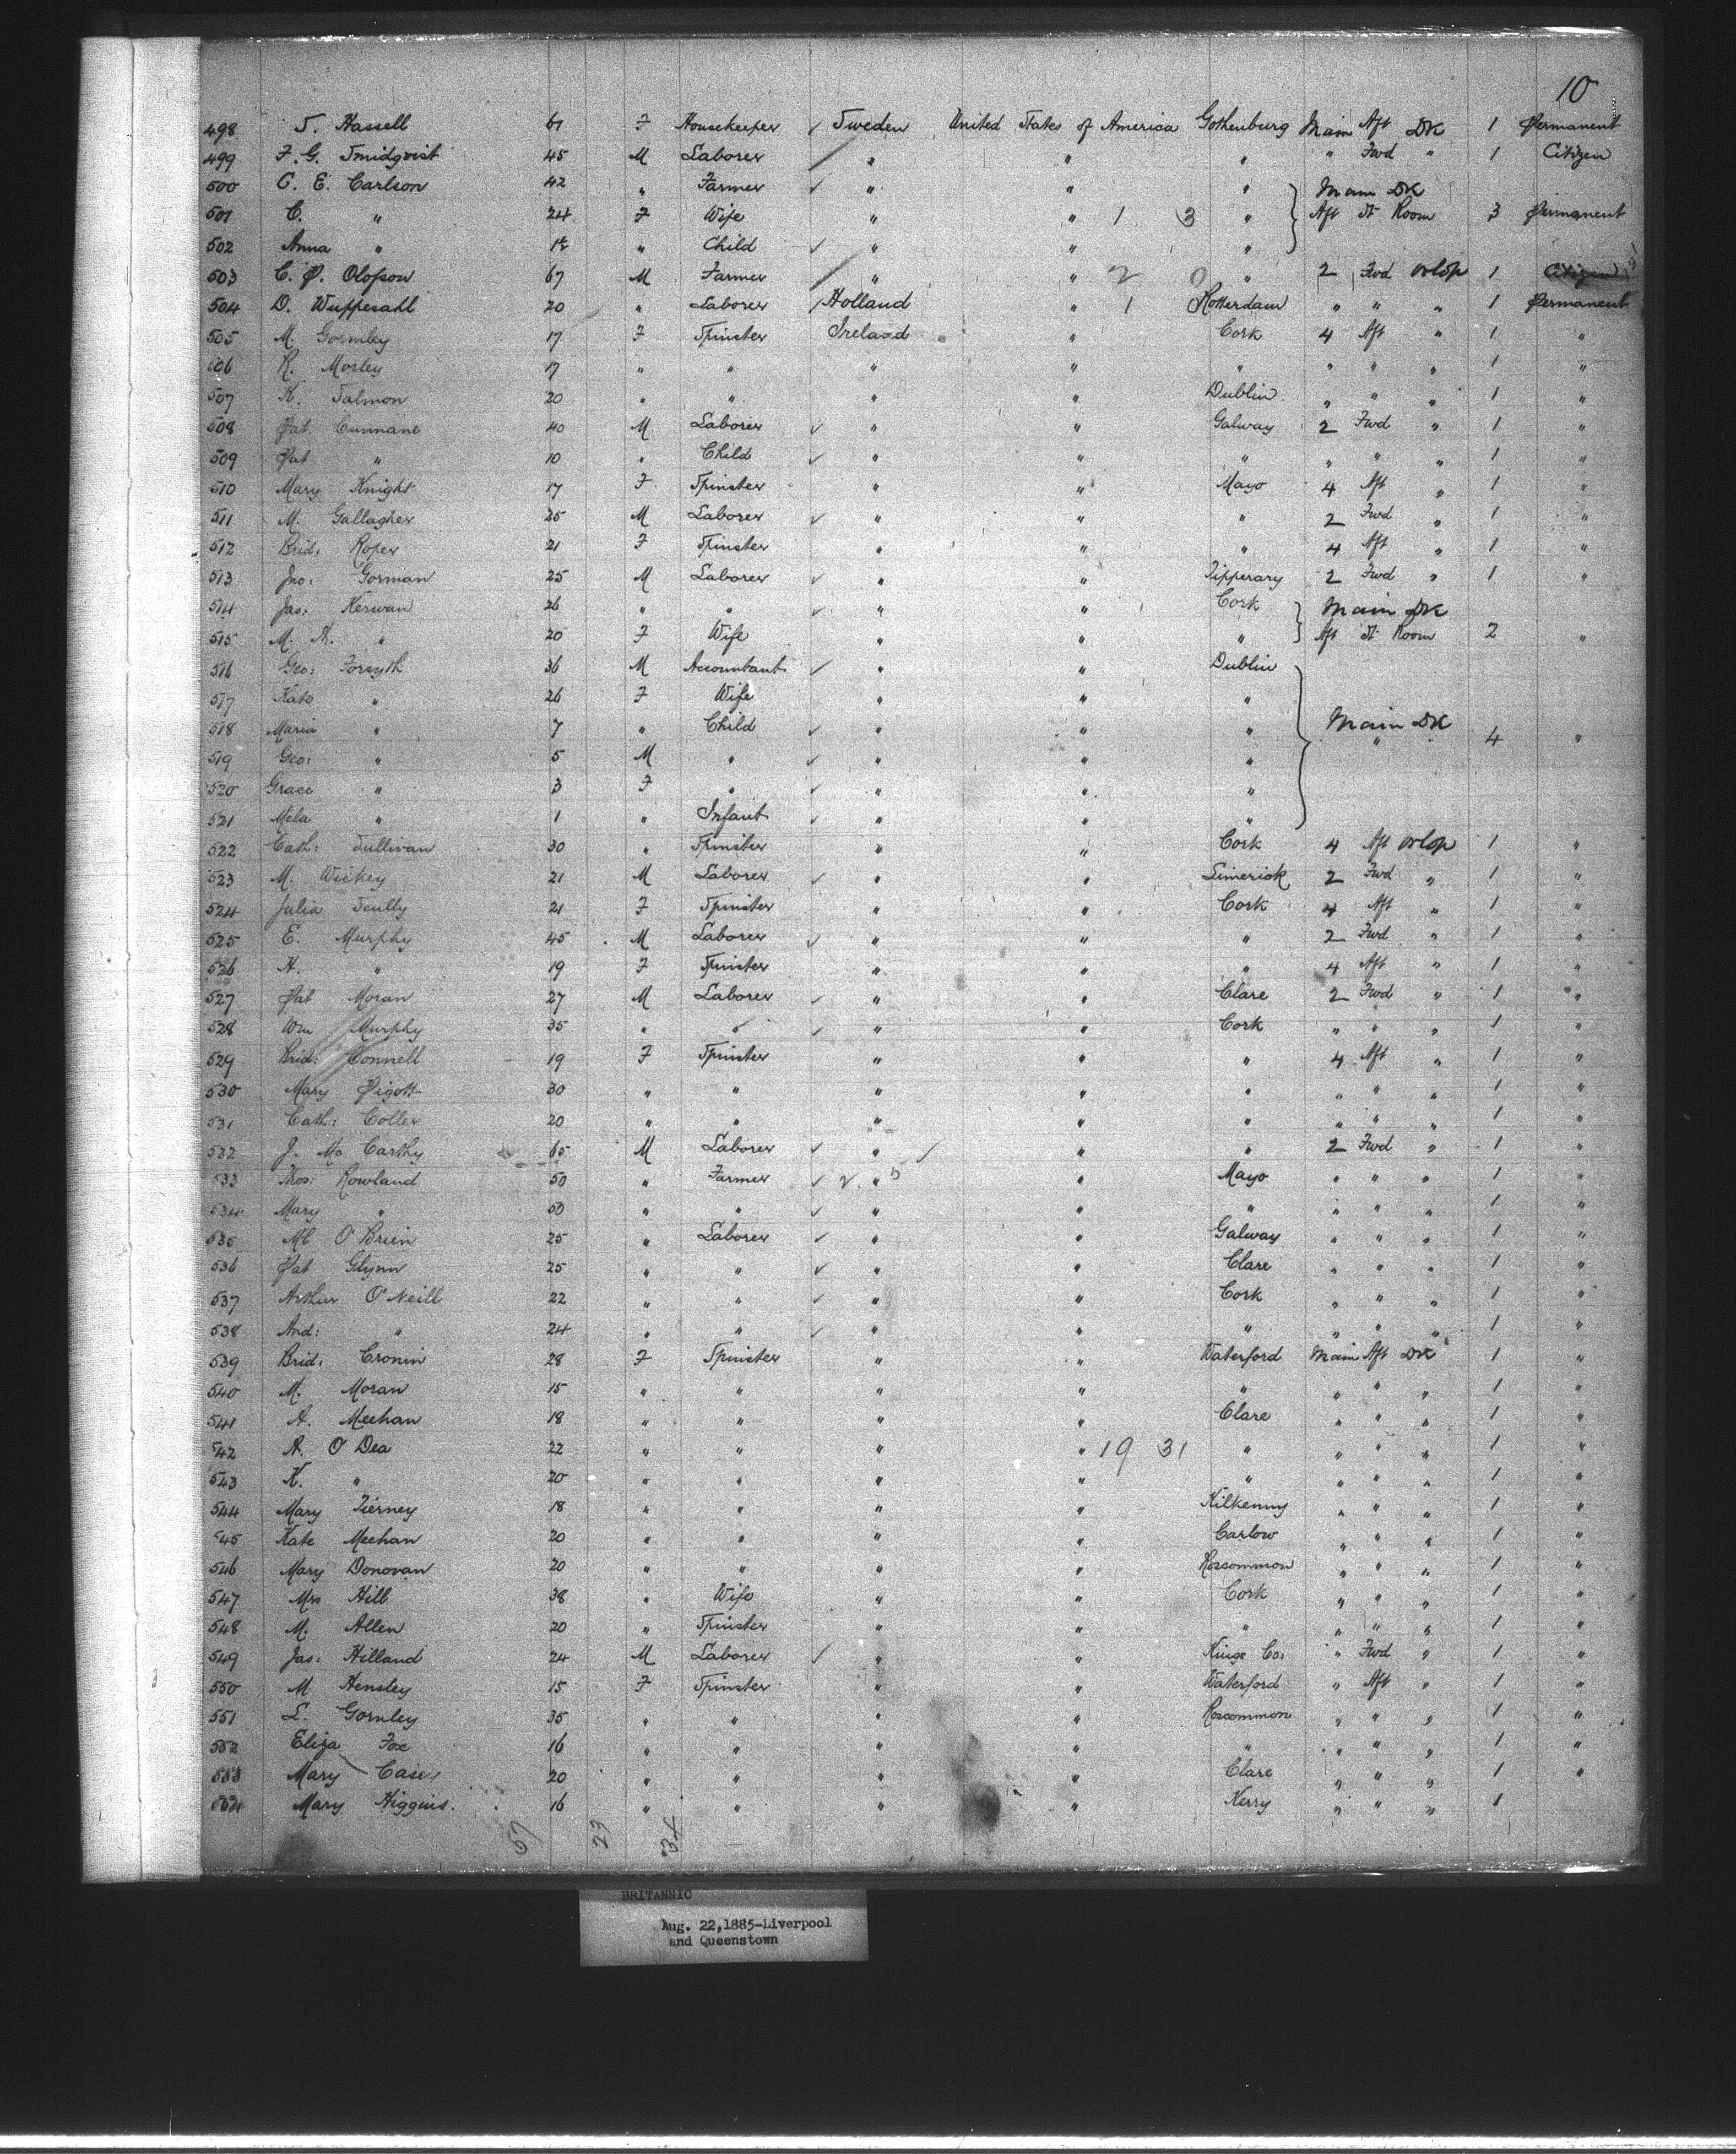 10
498 T. Hassell 61 F Housekeeper ✓ Sweden United States of America Gothenburg Main Aft DK 1 Permanent
499 F. G. Smidqvist 45 M Laborer / " " " " Fwd " 1 Citizen
500 C. E. Carlson 42 " Farmer ✓ " " " } Main DK
501 C. " 24 F Wife " " 1 3 " Aft St Room 3 Permanent
502 Anna " " Child ✓ " " "
503 C. P. Olofson 67 M Farmer / " " 2 0 " 2 Fwd orlop 1 Citizen
504 D. Wuppesahl 20 " Laborer / Holland " 1 Rotterdam " " " 1 Permanent
505 M. Gormley 17 F Spinster Ireland " Cork 4 Aft " 1 "
506 R. Morley 17 " " " " " " " " 1 "
507 K. Salmon 20 " " " " Dublin " " " 1 "
508 Pat Cunnane 40 M Laborer ✓ " " Galway 2 Fwd " 1 "
509 Pat " 10 " Child ✓ " " " " " " 1 "
510 Mary Knight 17 F Spinster " " Mayo 4 Aft " 1 "
511 M. Gallagher 25 M Laborer ✓ " " " 2 Fwd " 1 "
512 Brid: Roper 21 F Spinster " " " 4 Aft " 1 "
513 Jno: Gorman 25 M Laborer ✓ " " Tipperary 2 Fwd " 1 "
514 Jas: Kerwan 26 " " ✓ " " Cork } Main DK
515 M. A. " 20 F Wife " " " Aft St Room 2 "
516 Geo: Forsyth 36 M Accountant ✓ " " Dublin
517 Kate " 26 F Wife " " "
518 Maria " 7 " Child ✓ " " " } Main DK " 4 "
519 Geo: " 5 M " ✓ " " "
520 Grace " 3 F " ✓ " " "
521 Mela " 1 " Infant ✓ " " "
522 Cath: Sullivan 30 " Spinster " " Cork 4 Aft orlop 1 "
523 M. Wickey 21 M Laborer ✓ " " Limerick 2 Fwd " 1 "
524 Julia Scully 21 F Spinster " " Cork 4 Aft " 1 "
525 E. Murphy 45 M Laborer ✓ " " " 2 Fwd " 1 "
526 H. " 19 F Spinster " " " 4 Aft " 1 "
527 Pat Moran 27 M Laborer ✓ " " Clare 2 Fwd " 1 "
528 Wm Murphy 35 " " ✓ " " Cork " " " 1 "
529 Brid: Connell 19 F Spinster " " " 4 Aft " 1 "
530 Mary Pigott 30 " " " " " " " " 1 "
531 Cath: Coller 20 " " " " " " " " 1 "
532 J. Mc Carthy 65 M Laborer ✓ " ✓ " " 2 Fwd " 1 "
533 Thos: Rowland 50 " Farmer ✓ 2 " 5 " Mayo " " " 1 "
534 Mary " 50 " " ✓ " " " " " " 1 "
535 Ml O'Brien 25 " Laborer ✓ " " Galway " " " 1 "
536 Pat Glynn 25 " " ✓ " " Clare " " " 1 "
537 Arthur O'Neill 22 " " ✓ " " Cork " " " 1 "
538 And: " 24 " " ✓ " " " " " " 1 "
539 Brid: Cronin 28 F Spinster " " Waterford Main Aft DK 1 "
540 M. Moran 15 " " " " " " " " 1 "
541 A. Meehan 18 " " " " Clare " " " 1 "
542 A. O'Dea 22 " " " " 19 31 " " " " 1 "
543 K. " 20 " " " " " " " " 1 "
544 Mary Tierney 18 " " " " Kilkenny " " " 1 "
545 Kate Meehan 20 " " " " Carlow " " " 1 "
546 Mary Donovan 20 " " " " Roscommon " " " 1 "
547 Mrs Hill 38 " Wife " " Cork " " " 1 "
548 M. Allen 20 " Spinster " " " " " " 1 "
549 Jas: Hilland 24 M Laborer ✓ " " Kings Co: " Fwd " 1 "
550 M Hensley 15 F Spinster " " Waterford " Aft " 1 "
551 L. Gornley 35 " " " " Roscommon " " " 1 "
552 Eliza Fox 16 " " " " " " " " 1 "
553 Mary Casey 20 " " " " Clare " " " 1 "
554 Mary Higgins. 16 " " " " Kerry " " " 1
57 23 34
BRITANNIC
Aug. 22,1885-Liverpool
and Queenstown